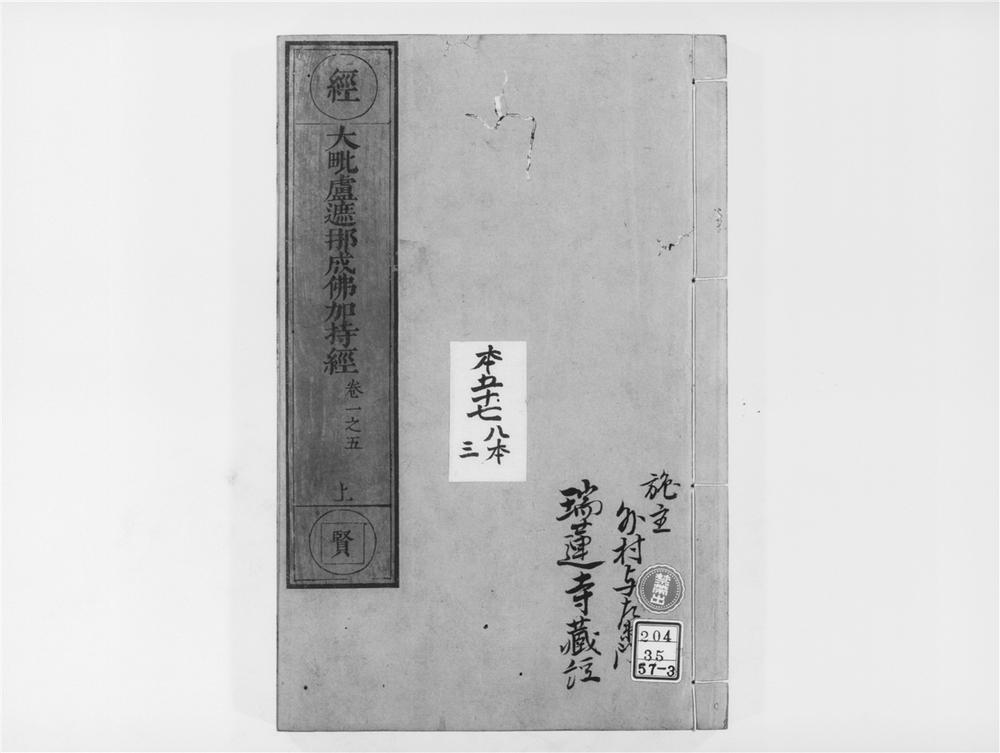 施主
外村与左衛門
瑞蓮寺藏経
本五十七
八本
三
經
大毗盧遮那成佛加持經
卷一之五
上
賢
禁帶出
204
35
57-3